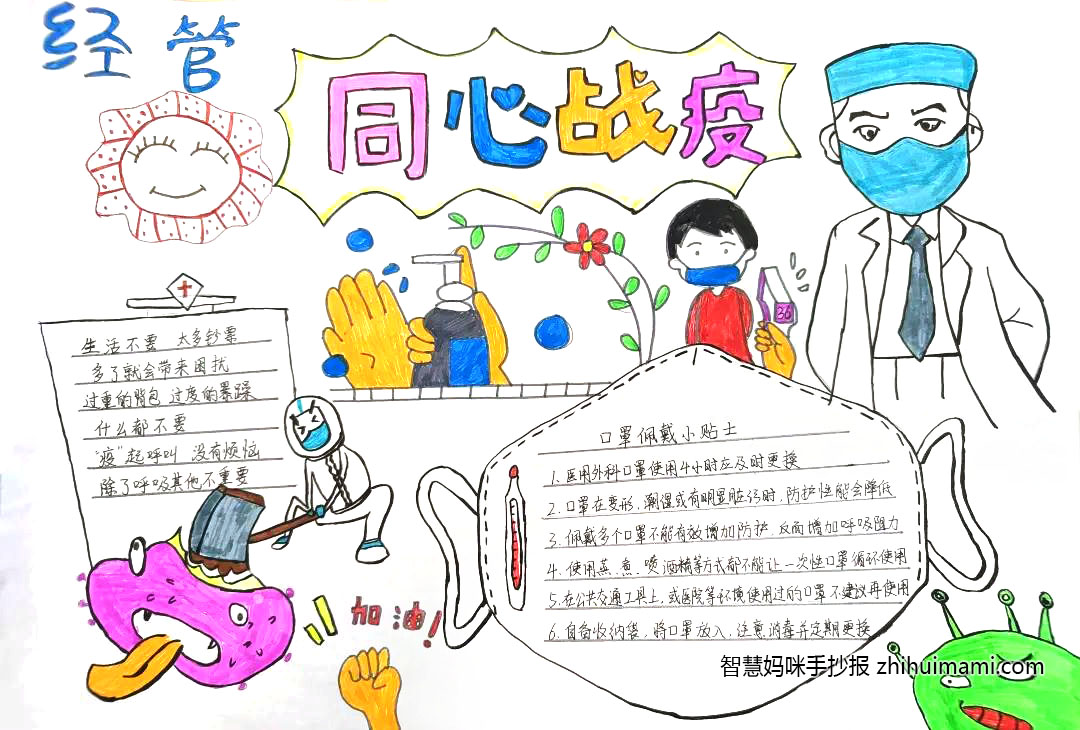 经管
同心战疫
36
生活不要 太多钞票
多了就会带来困扰
过重的背包 过度的暴躁
什么都不要
“疫”起呼叫 没有烦恼
除了呼吸其他不重要
加油!
口罩佩戴小贴士
1. 医用外科口罩使用4小时应及时更换
2. 口罩在变形、潮湿或有明显脏污时，防护性能会降低
3. 佩戴多个口罩不能有效增加防护，反而增加呼吸阻力
4. 使用蒸、煮、喷洒酒精等方式都不能让一次性口罩循环使用
5. 在公共交通工具上，或医院等环境使用过的口罩不建议再使用
6. 自备收纳袋，将口罩放入，注意消毒并定期更换
智慧妈咪手抄报 zhihuimami.com